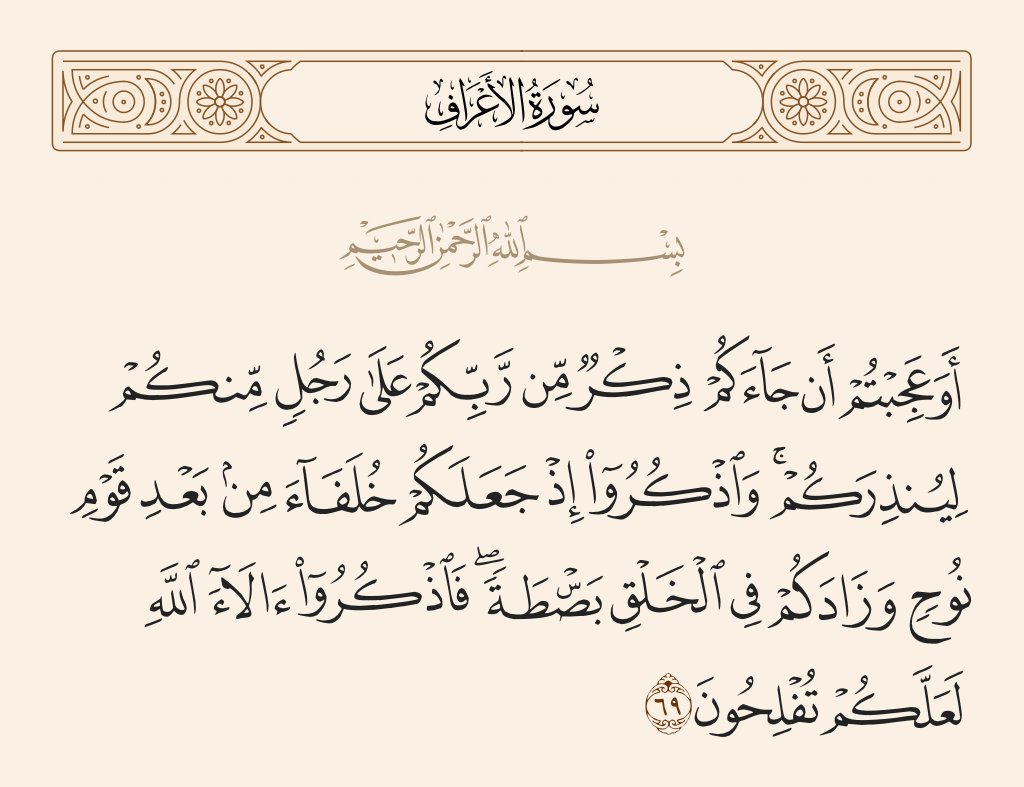 سُورَةُ الأَعْرَافِ
بِسْمِ ٱللَّهِ ٱلرَّحْمَٰنِ ٱلرَّحِيمِ
أَوَعَجِبْتُمْ أَن جَآءَكُمْ ذِكْرٌ مِّن رَّبِّكُمْ عَلَىٰ رَجُلٍ مِّنكُمْ
لِيُنذِرَكُمْ ۚ وَٱذْكُرُوٓا۟ إِذْ جَعَلَكُمْ خُلَفَآءَ مِنۢ بَعْدِ قَوْمِ
نُوحٍ وَزَادَكُمْ فِى ٱلْخَلْقِ بَصْۜطَةً ۖ فَٱذْكُرُوٓا۟ ءَالَآءَ ٱللَّهِ
لَعَلَّكُمْ تُفْلِحُونَ ٦٩